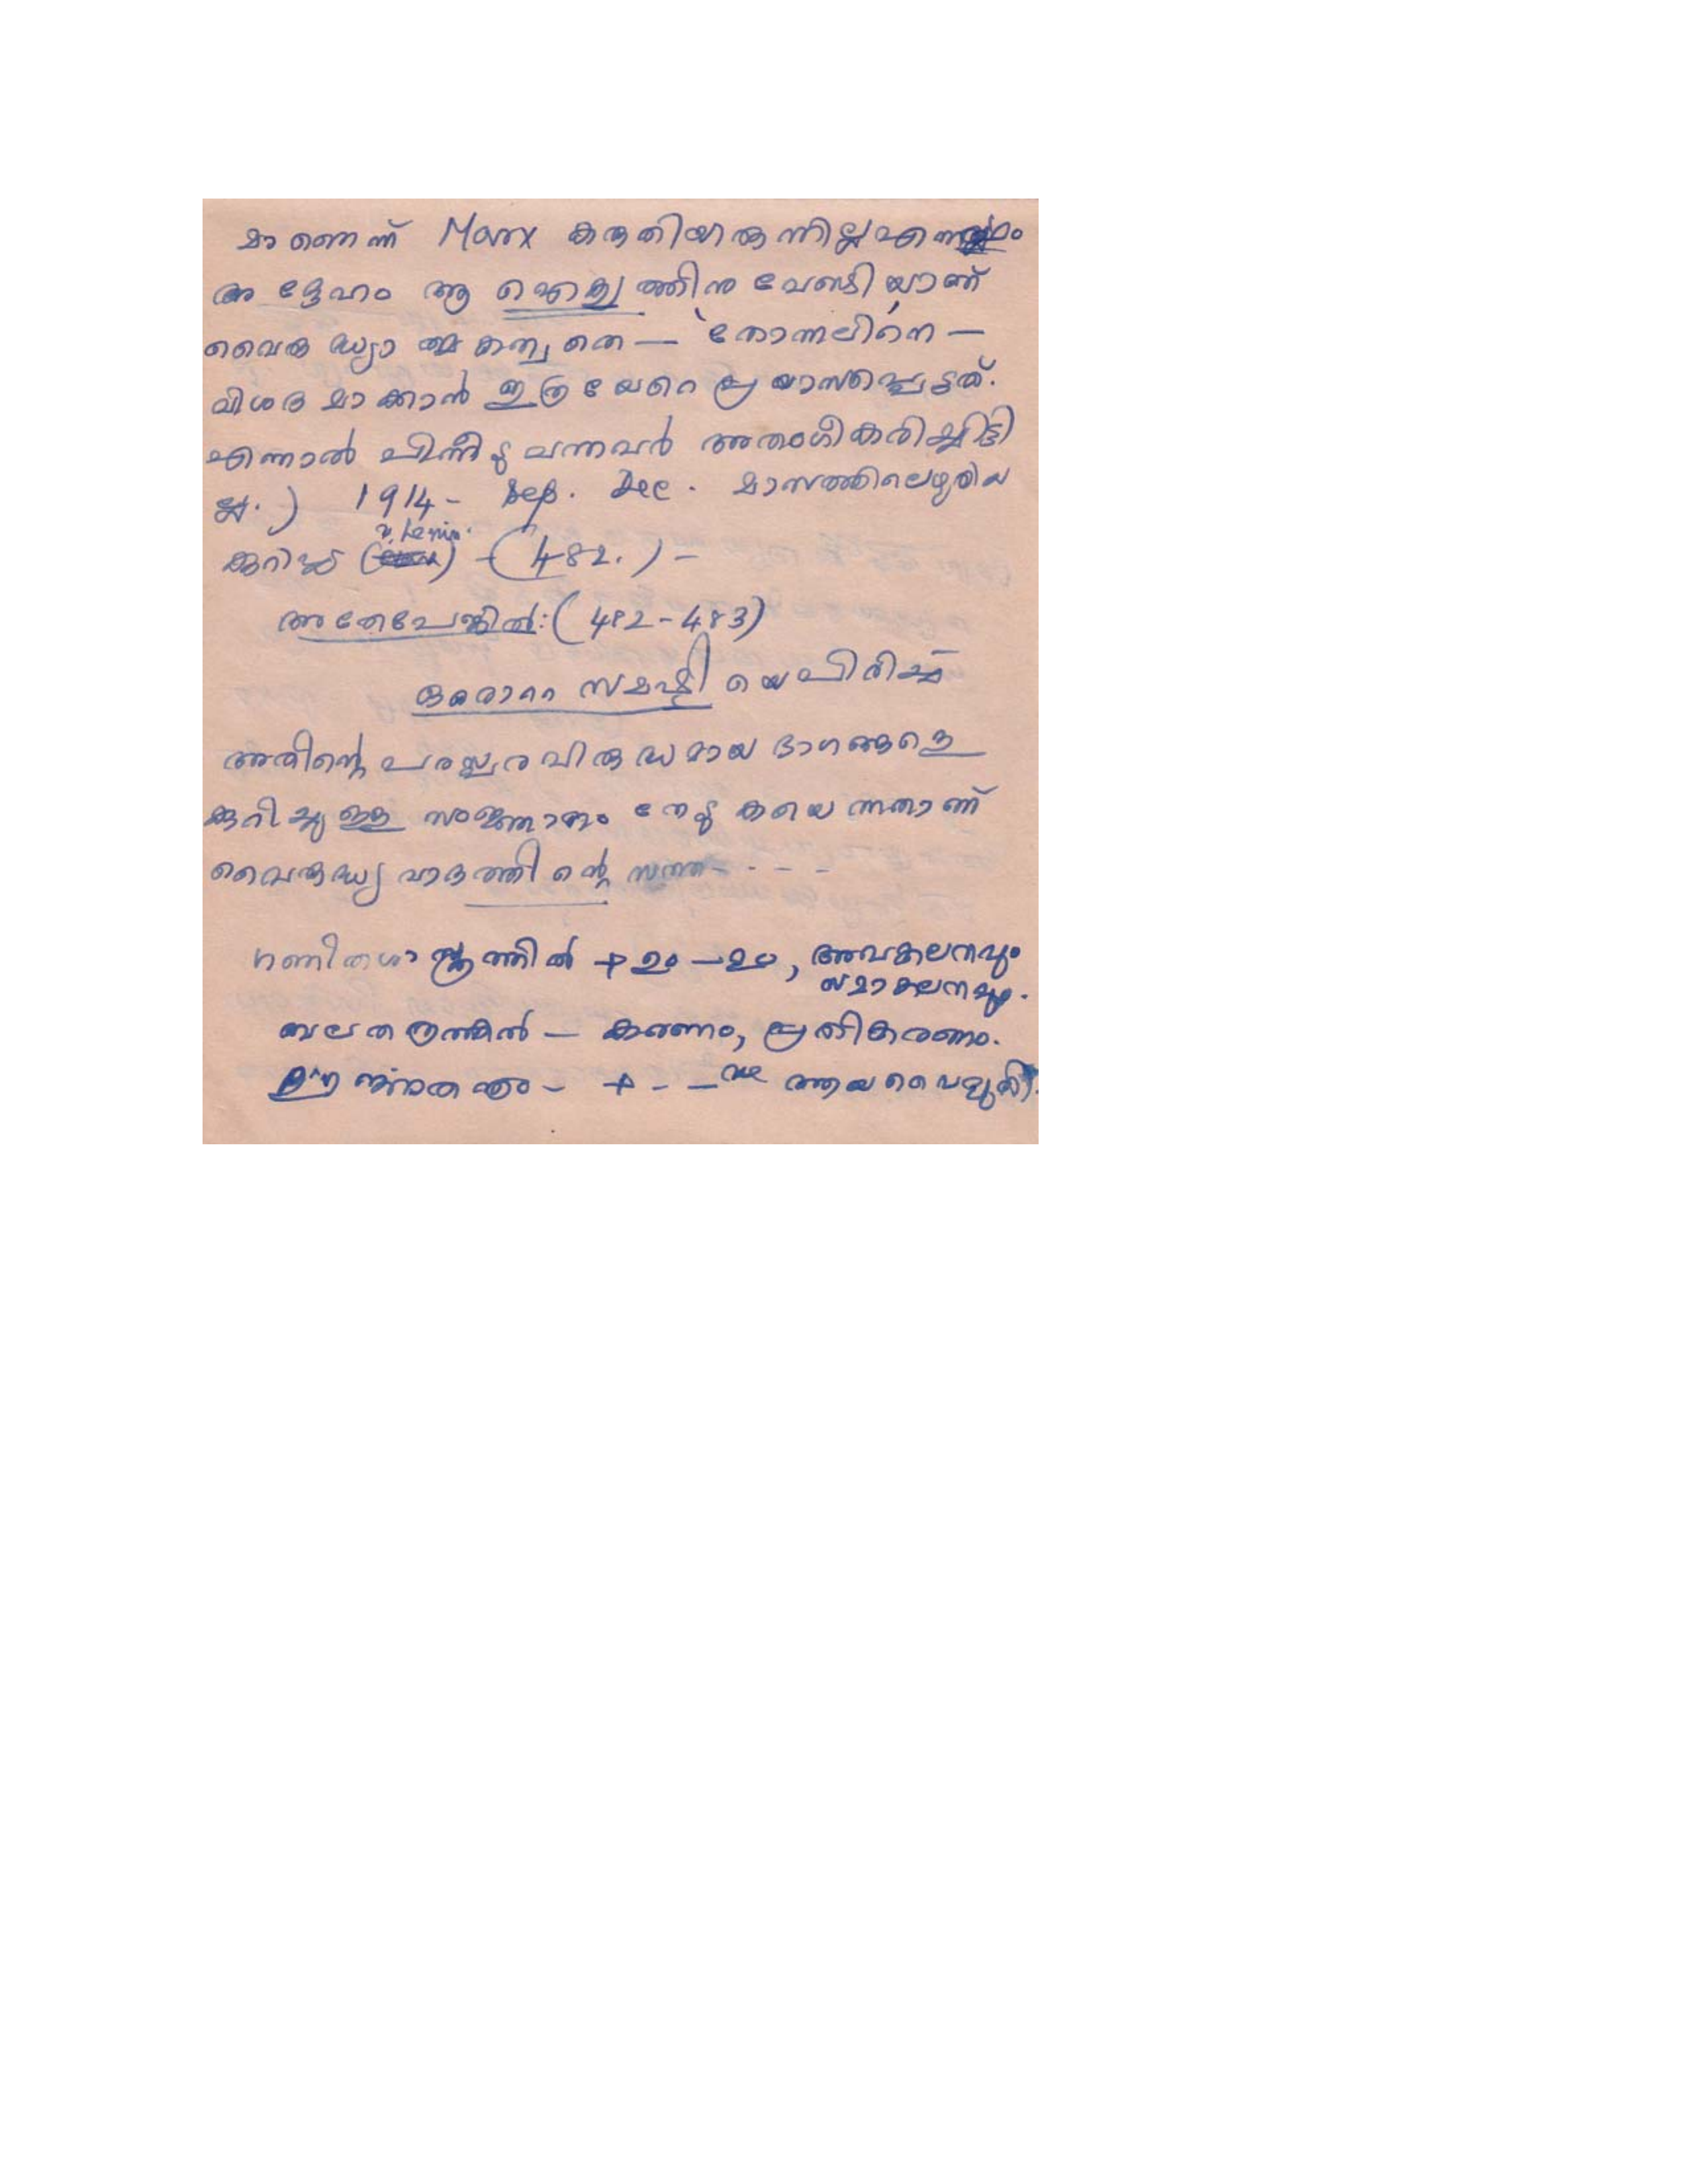 മാണെന്ന് Marx കരുതിയിരുന്നില്ല എന്നും
അദ്ദേഹം ആ ഐക്യത്തിനു വേണ്ടിയാണ്
വൈരുദ്ധ്യാത്മകത്വത്തെ — 'തോന്നലിനെ' —
വിശദമാക്കാൻ ഇത്രയേറെ പ്രയാസപ്പെട്ടത്.
എന്നാൽ പിന്നീടു വന്നവർ അതംഗീകരിച്ചിട്ടി
ല്ല.) 1914 - Sep. Dec. മാസത്തിലെഴുതിയ
കുറിപ്പ് (V. Lenin.) - (482.) -
അതേപേജിൽ: (482-483)
ഒരൊറ്റ സമഷ്ടിയെ പിരിച്ച്
അതിന്റെ പരസ്പരവിരുദ്ധമായ ഭാഗങ്ങളെ
ക്കുറിച്ചുള്ള സംജ്ഞാനം നേടുകയെന്നതാണ്
വൈരുദ്ധ്യവാദത്തിന്റെ സത്ത - - - -
ഗണിതശാസ്ത്രത്തിൽ + ഉം - ഉം, അവകലനവും
സമാകലനവും.
ബലതന്ത്രത്തിൽ — കരണം, പ്രതികരണം.
ഊർജ്ജതന്ത്രം - + - -ve ആയ വൈദ്യുതി.